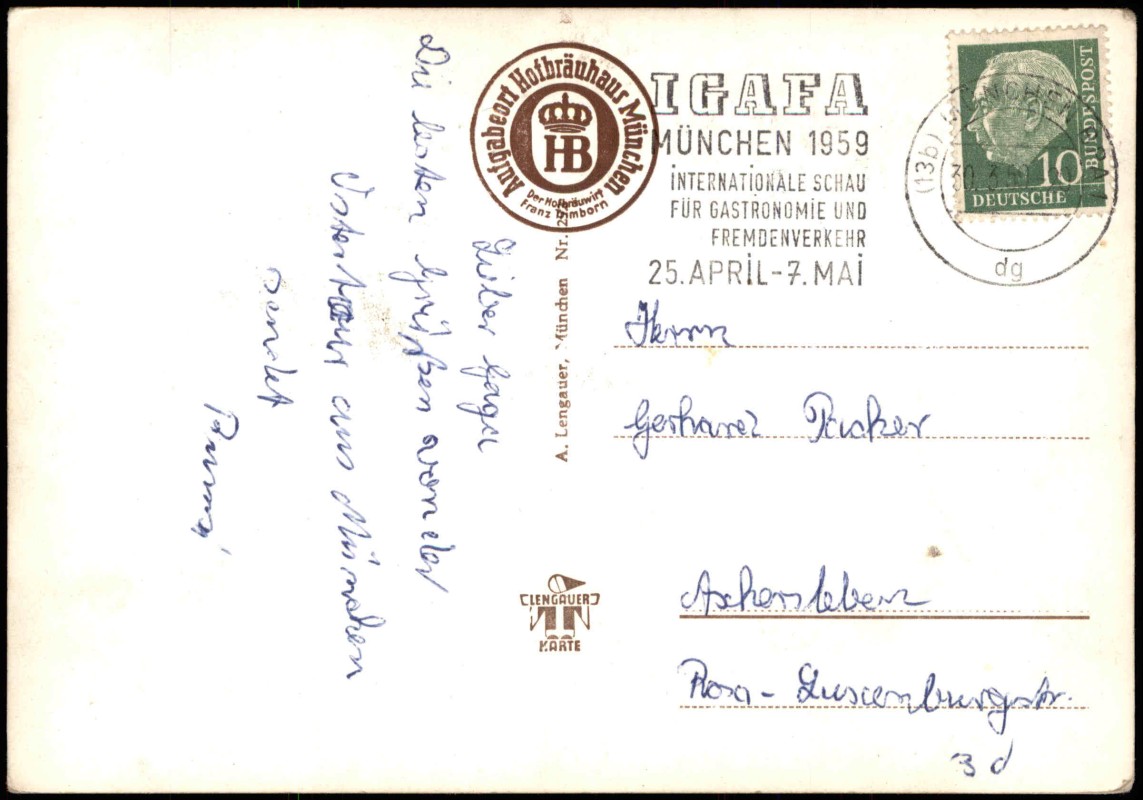 Aufgabeort Hofbräuhaus München
HB
Der Hofbräuwirt
Franz Trimborn
IGAFA
MÜNCHEN 1959
INTERNATIONALE SCHAU
FÜR GASTRONOMIE UND
FREMDENVERKEHR
25. APRIL - 7. MAI
(13b) MÜNCHEN
30. 3. 59
dg
10
DEUTSCHE
BUNDESPOST
Lieber
Die besten Grüßen von der
Ostertour aus München
sendet
A. Lengauer, München Nr.
LENGAUER
KARTE
Herrn
Gerhard Packer
Aschersleben
Rosa-Luxenburgstr.
3d